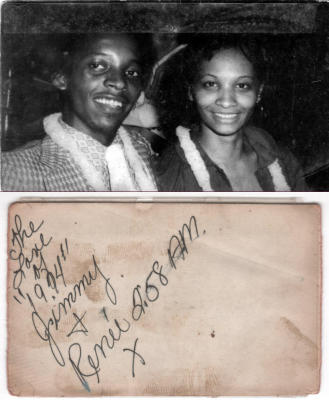 The
"Love
of
1974"
Jimmy
&
Reneé 2:58 A.M.
X